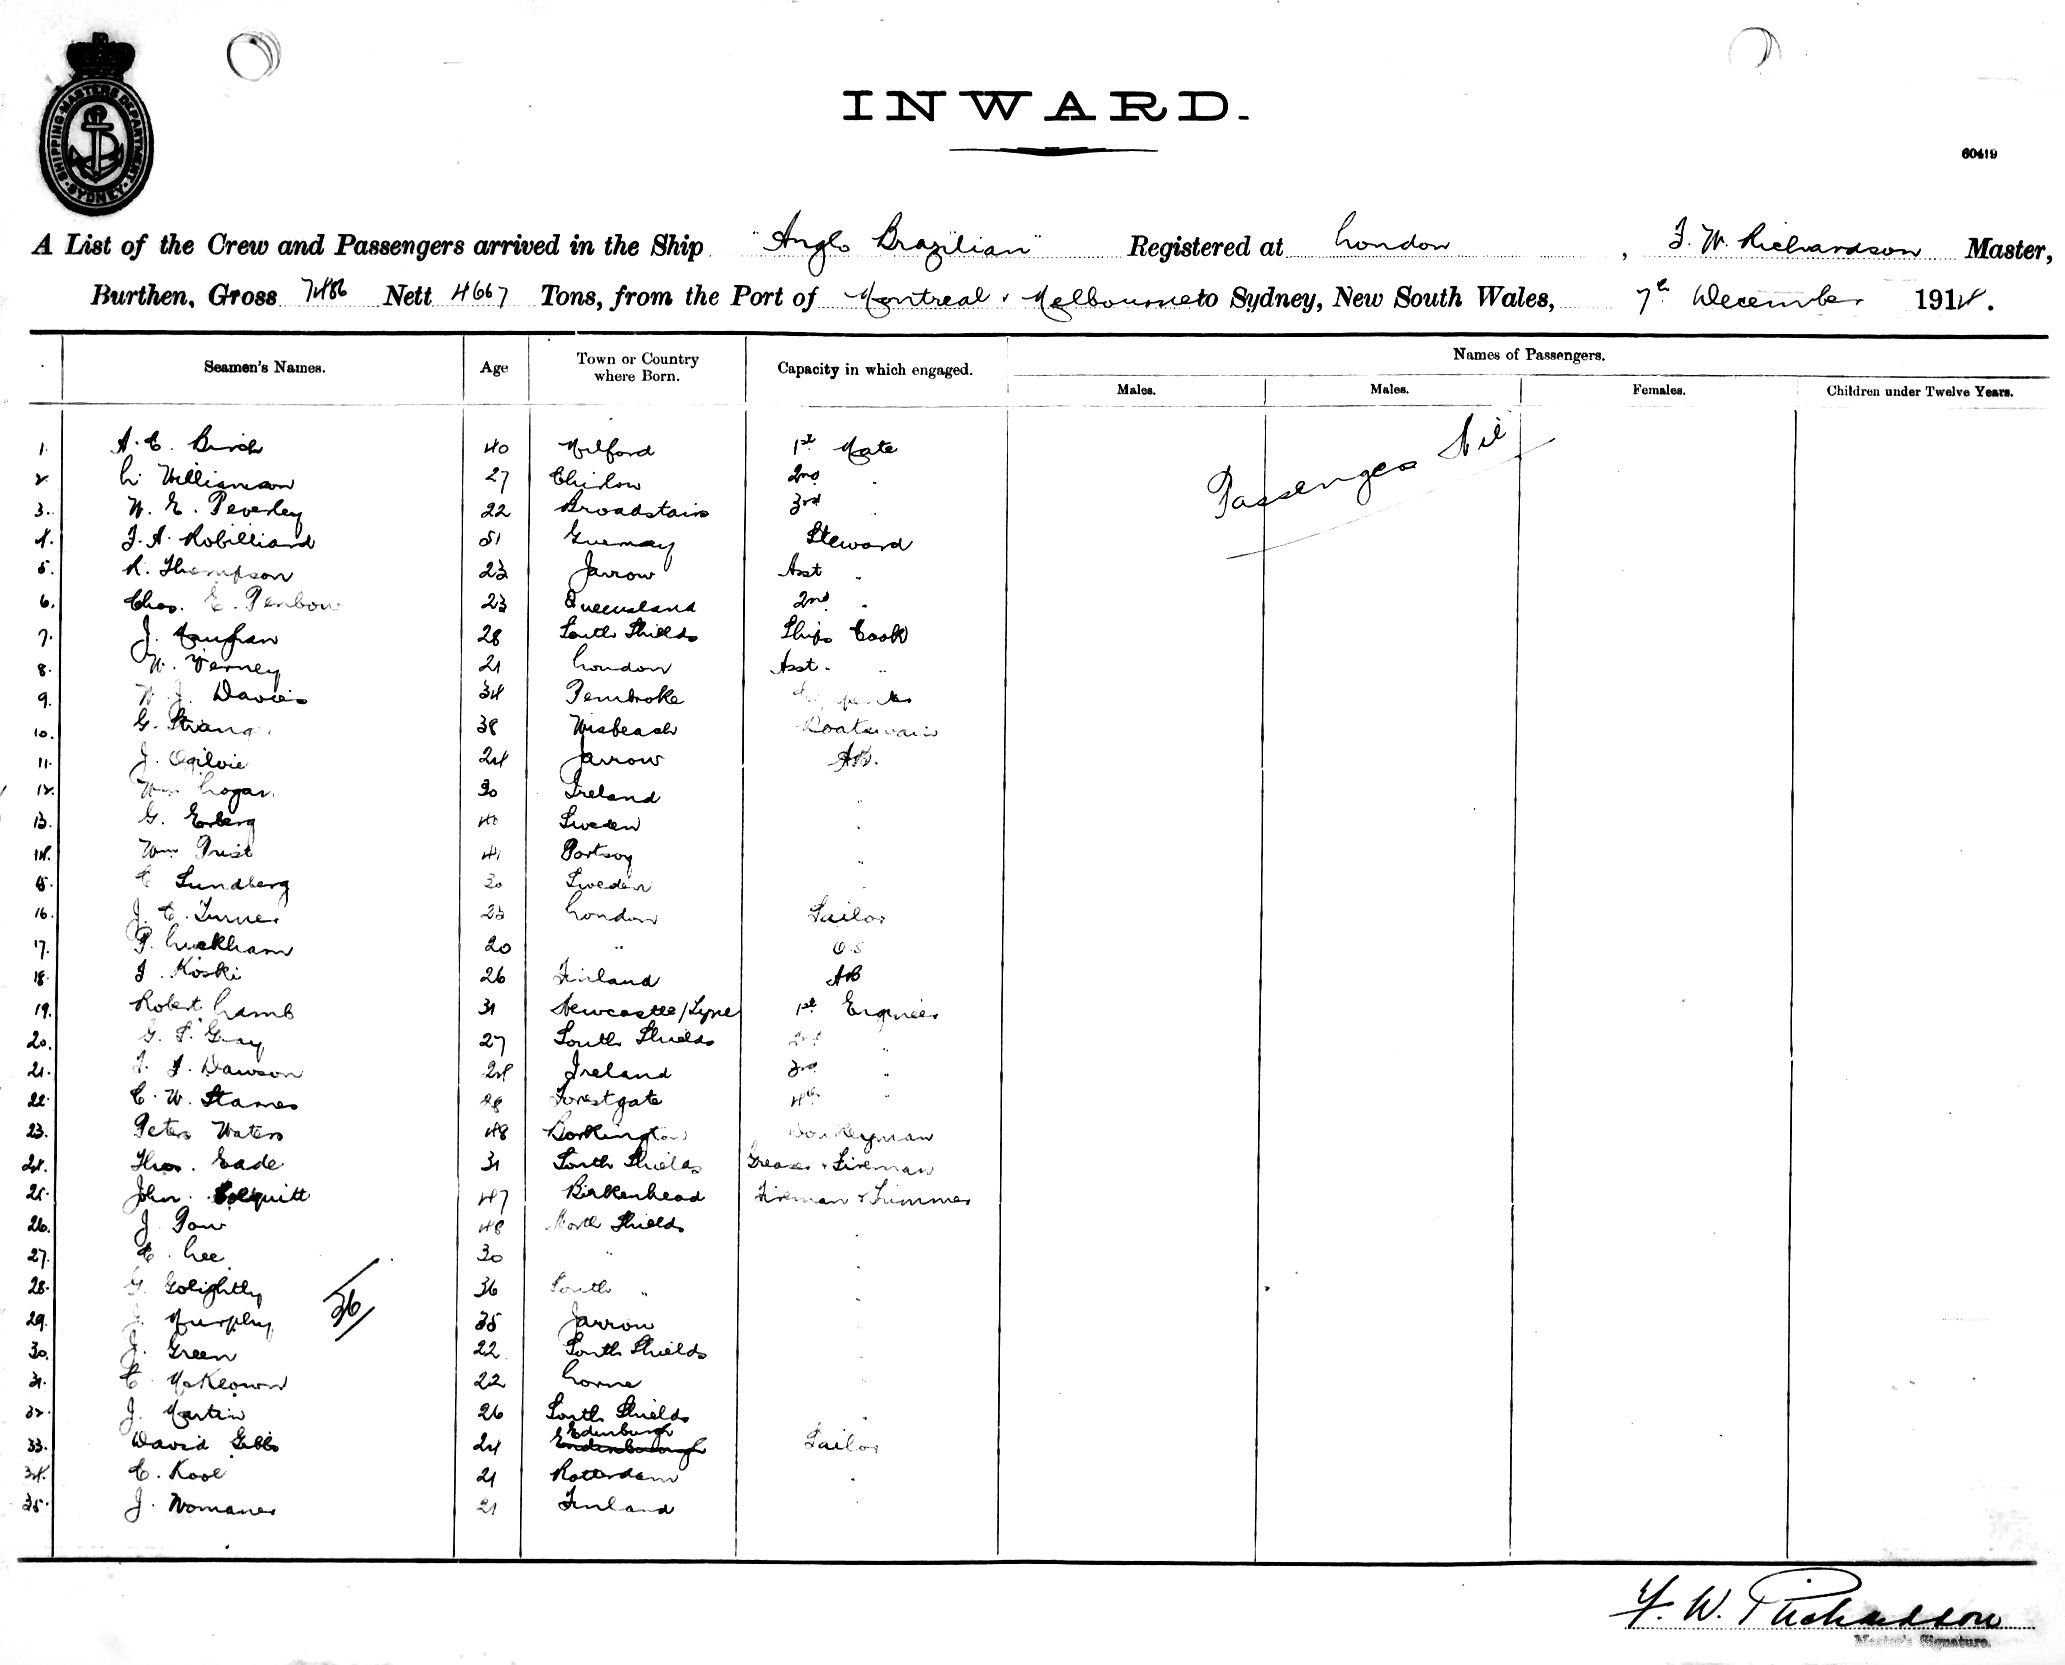 SHIPPING MASTERS DEPARTMENT SYDNEY
INWARD.
60419
A List of the Crew and Passengers arrived in the Ship "Anglo Brazilian" Registered at London, F. W. Richardson Master,
Burthen, Gross 7486 Nett 4667 Tons, from the Port of Montreal & Melbourne to Sydney, New South Wales, 7th December 1914.
Seamen's Names. Age Town or Country where Born. Capacity in which engaged. Names of Passengers.
Males. Males. Females. Children under Twelve Years.
Passengers Nil
1. A. E. Birch 40 Milford 1st Mate
2. L. Williamson 27 2nd "
3. W. E. Peverley 22 Broadstairs 3rd "
4. J. A. Robilliard 51 Guernsay Steward
5. R. Thompson 23 Jarrow Asst "
6. Chas. E. Penbow 23 Queensland 2nd "
7. J. 28 South Shields Ships Cook
8. W. Verney 21 London Asst. "
9. W. J. Davies 34 Pembroke
10. G. Strang 38 Wisbeach Boatswain
11. J. Ogilvie 24 Jarrow AB.
12. Wm Logan 30 Ireland "
13. G. Erberg 40 Sweden "
14. Wm Prist 41 Portsoy "
15. C Lundberg 30 Sweden
16. J. C. Turner 23 London Sailor
17. P. Luckham 20 " O.S
18. J. Koski 26 Finland AB
19. Robert Lamb 31 Newcastle/Tyne 1st Engineer
20. G. P. Gray 27 South Shields 2nd "
21. J. J. Dawson 24 Ireland 3rd "
22. C. W. Stames 28 Forestgate 4th "
23. Peter Waters 48 Donkeyman
24. Thos. Eade 31 South Shields Greaser & Fireman
25. John Colquitt 47 Birkenhead Fireman & Trimmer
26. J. Pow 48 North Shields "
27. C. Lee 30 " "
28. G. Golightly 36 South " "
29. J. Murphy 35 Jarrow
30. J. Green 22 South Shields "
31. C. McKeown 22 Lorne "
32. J. Martin 26 South Shields "
33. David Gibbs 24 Edinburgh Sailor
34. C. Kool 21 Rotterdam "
35. J. Nomanen 21 Finland "
36
F. W. Richardson
Master's Signature.